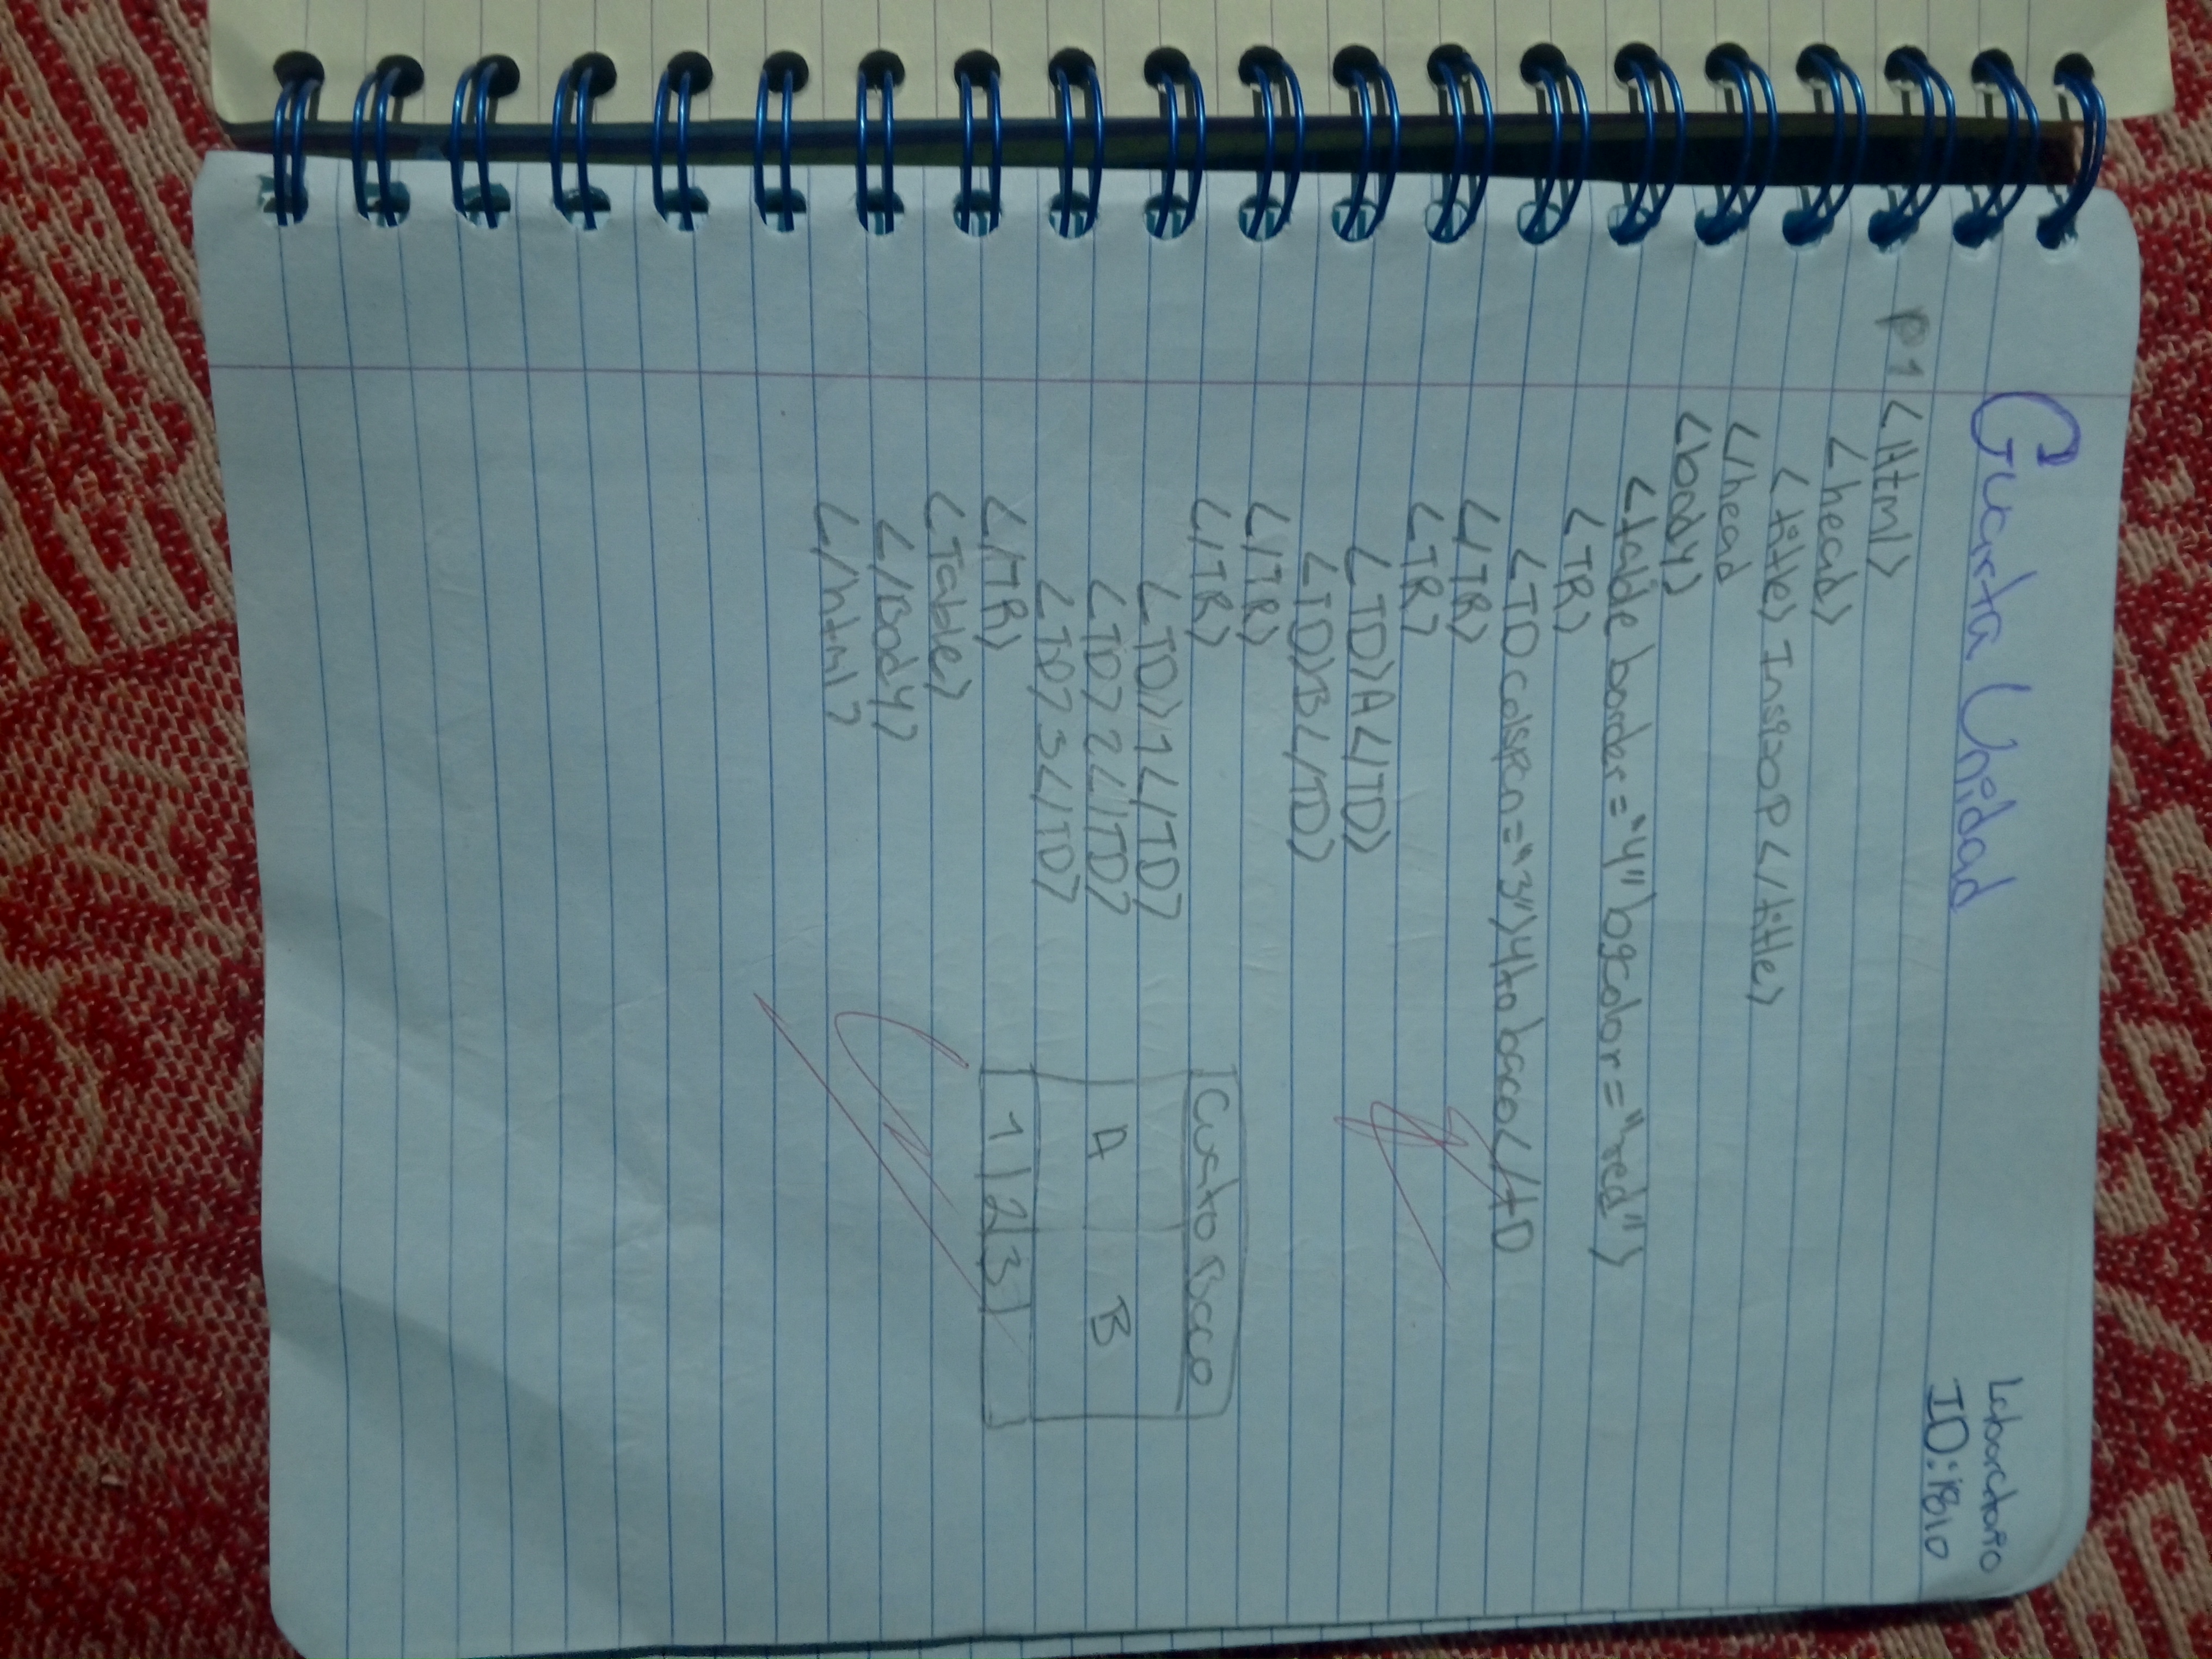 Laboratorio
Cuarta Unidad
ID:1810
P1 <Html>
<head>
<title> Insizop</title>
</head
<body>
<table border="4" bgcolor="red">
<TR>
<TD colspan="3">4to baco</tD
</TR>
<TR>
<TD>A</TD>
<TD>B</TD>
</TR>
</TR>
<TD>1</TD>
<TD>2</TD>
<TD>3</TD>
</TR>
<Table>
</Body>
</html>
Cuarto Baco
A B
1 2 3